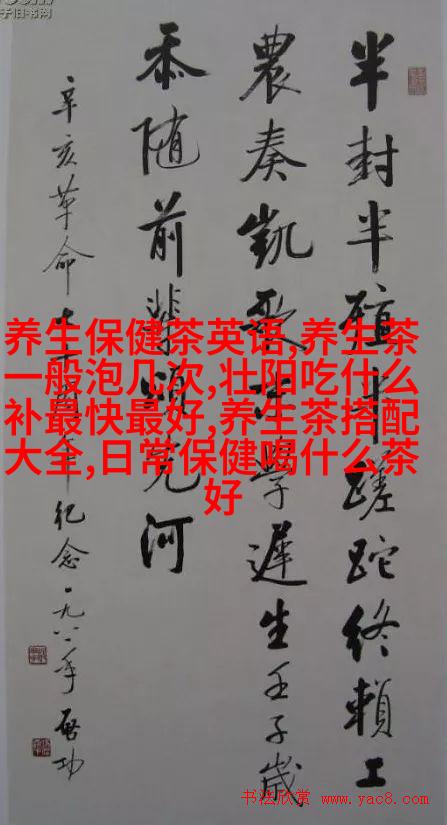 半封半殖半蹉跎终賴工
農奏凱歌末學遲生壬子歲
忝随前輩河
辛亥革命七十週年纪念一九八一年啓功
养生保健茶英语,养生茶
一般泡几次,壮阳吃什么
补最快最好,养生茶搭配
大全,日常保健喝什么茶
好
书法欣赏 www.yac8.com